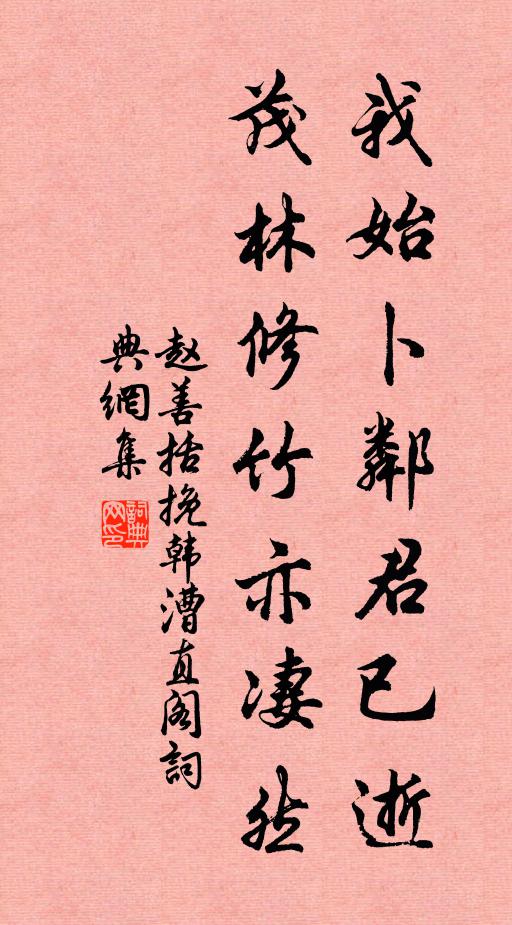 我始卜鄰君已逝
茂林修竹亦凄然
赵善括挽韩漕直阁詞
典網集
詞典网印